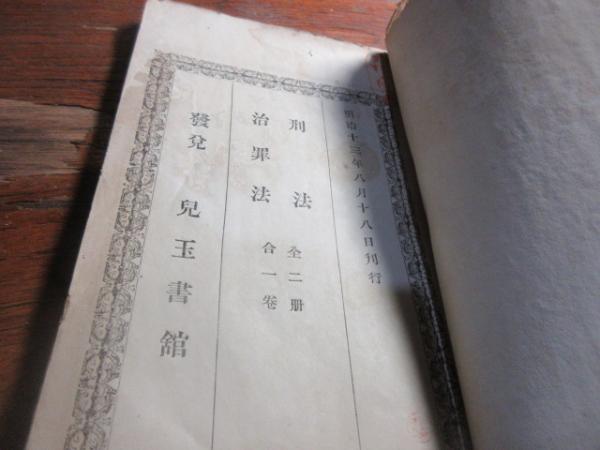 明治十三年八月十八日刊行
刑法 全二册
治罪法 合一卷
發兌 兒玉書舘